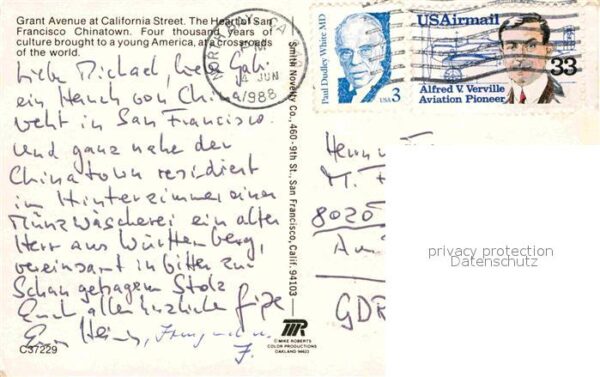 Grant Avenue at California Street. The Heart of San
Francisco Chinatown. Four thousand years of
culture brought to a young America, at a crossroads
of the world.
Liebe Michael, liebe Gabi
ein Hauch von China
weht in San Francisco.
Und ganz nahe der
Chinatown residiert
im Hinterzimmer einer
Münzwäscherei ein alter
Herr aus Württemberg,
vereinsamt in bitter zur
Schau getragem Stolz
Euch allen herzliche Grüße
Euer Heinz,
C37229
Smith Novelty Co., 460-9th St., San Francisco, Calif. 94103
©MIKE ROBERTS
COLOR PRODUCTIONS
OAKLAND 94623
JUN
1988
Paul Dudley White MD
USA 3
USAirmail
33
Alfred V. Verville
Aviation Pioneer
M.
8020
GDR
privacy protection
Datenschutz